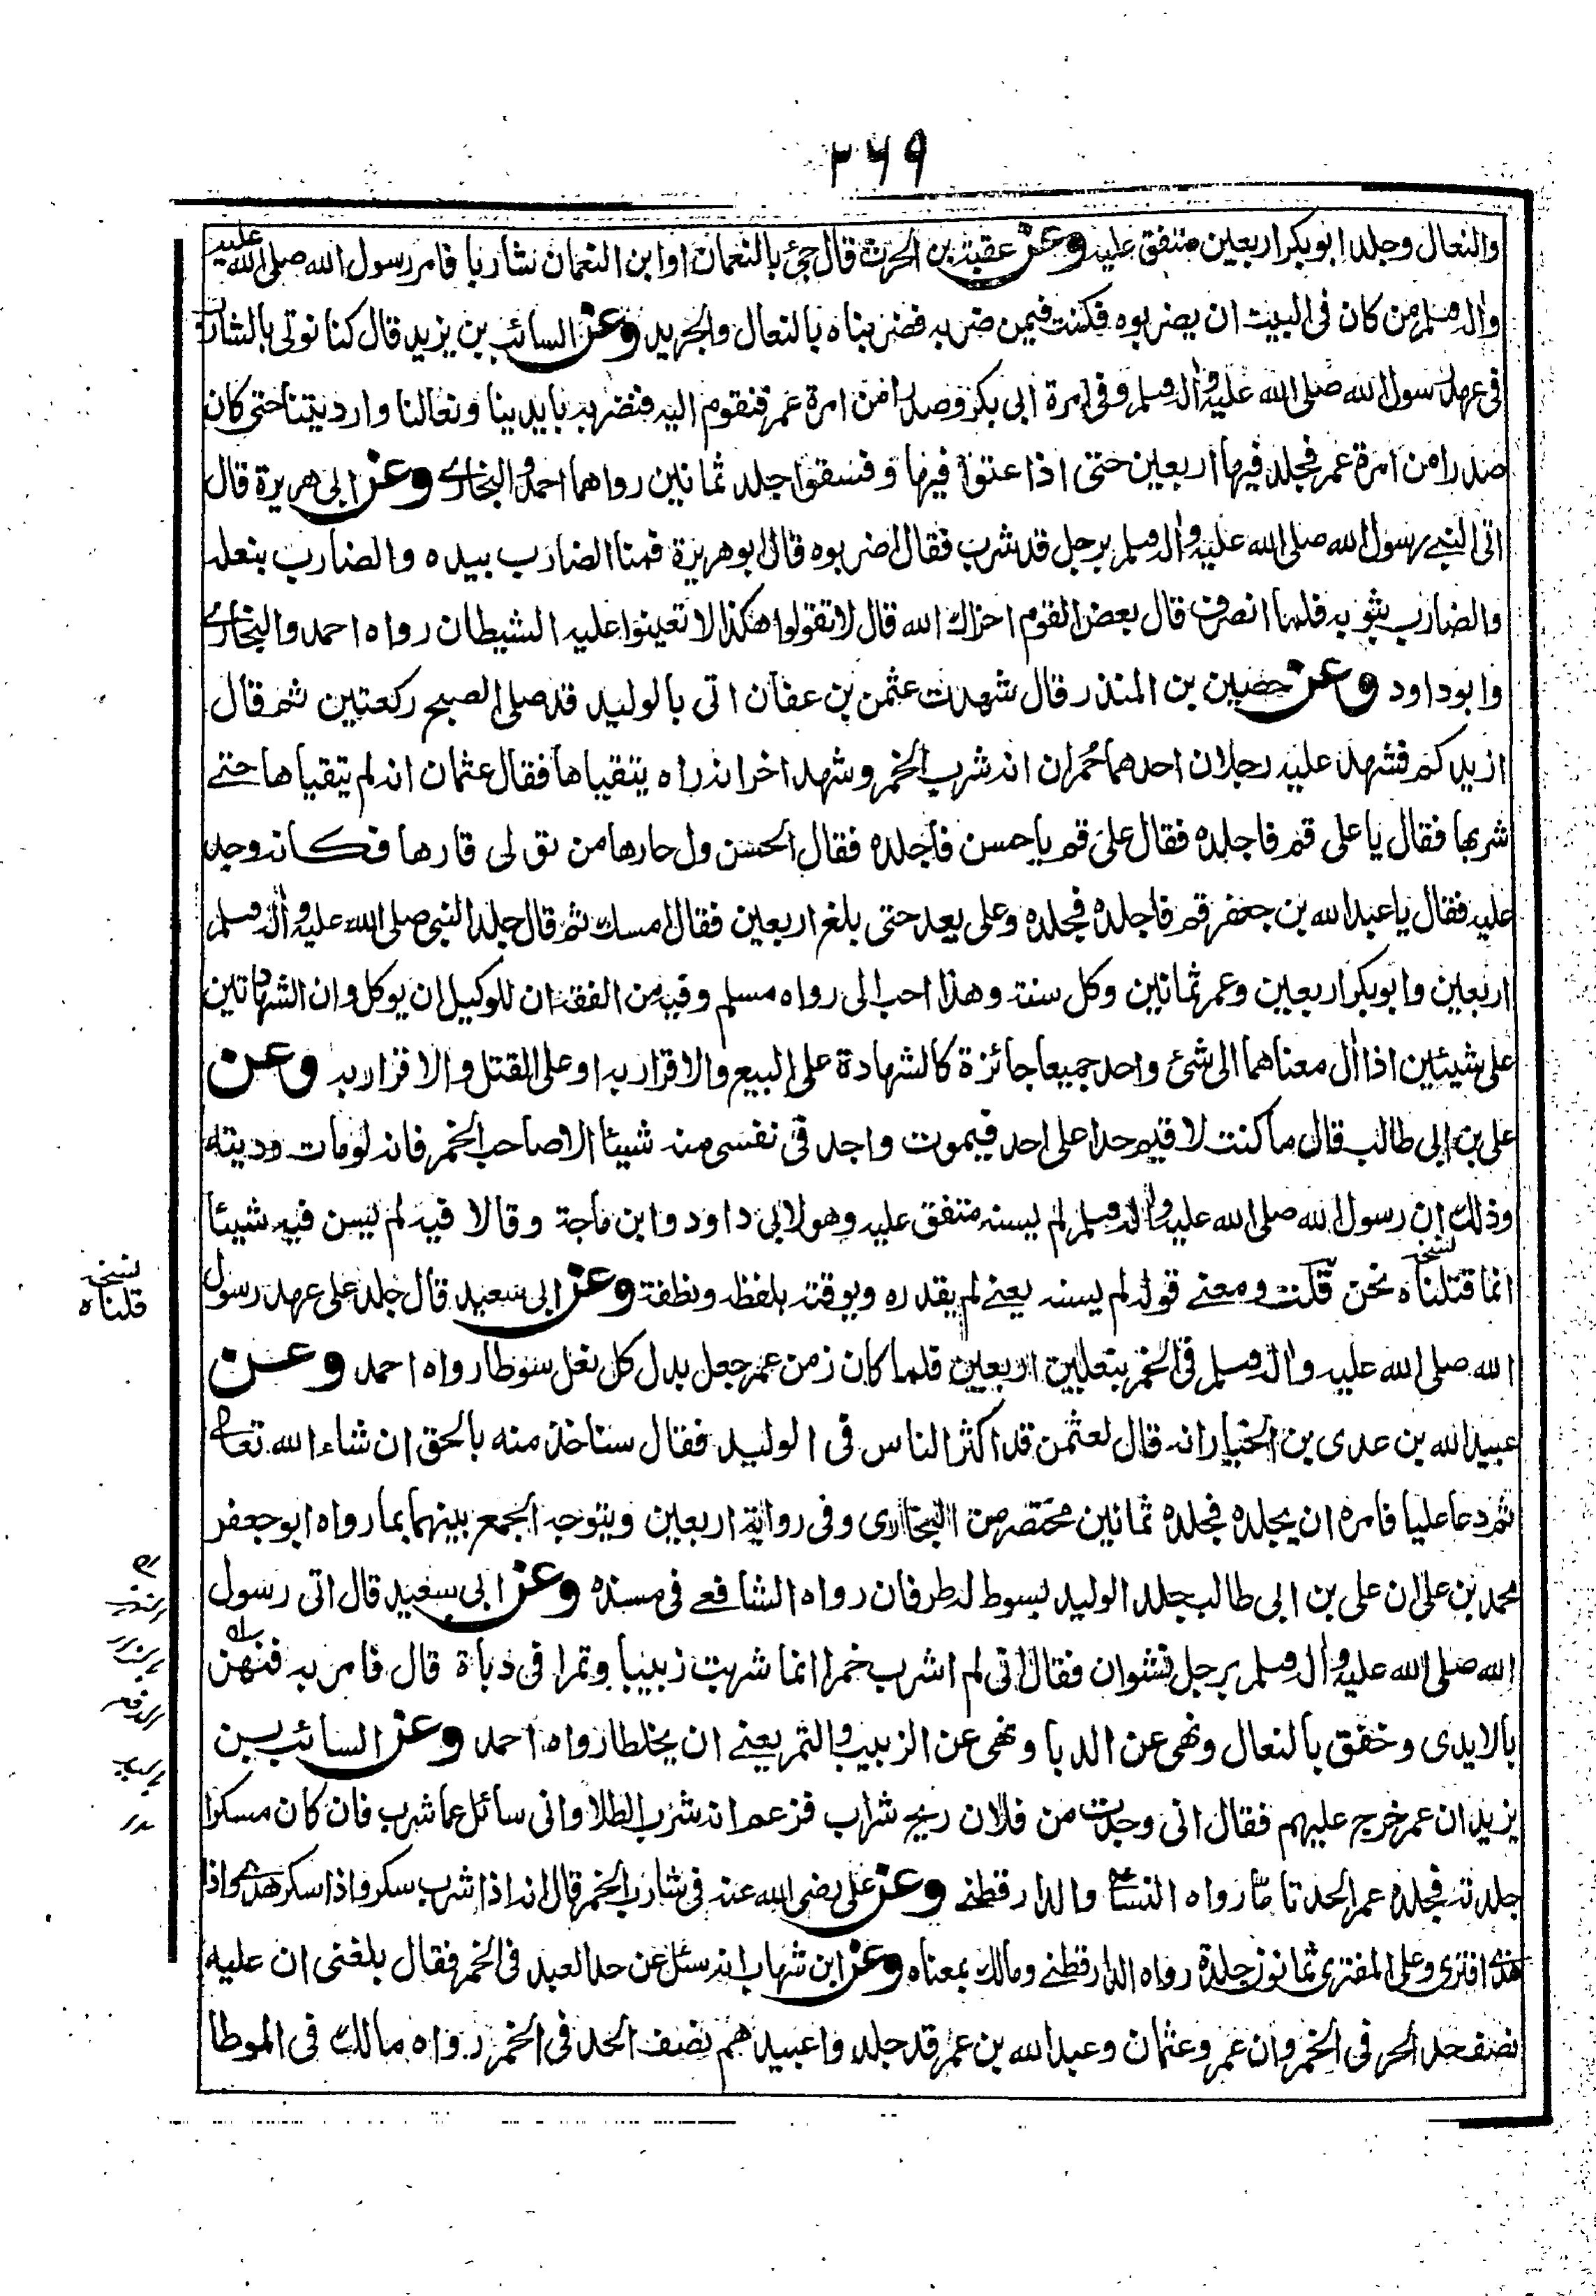 ٣٦٩
والنعال وجلد ابو بكر اربعين متفق عليه وعن عقبة بن الحرث قال جئ بالنعمان او ابن النعمان شاربا فامر رسول الله صلى الله عليه
واله وسلم من كان فى البيت ان يضربوه فكنت فيمن ضربه فضربناه بالنعال والجريد وعن السائب بن يزيد قال كنا نوتى بالشارب
فى عهد رسول الله صلى الله عليه واله وسلم وفى امرة ابى بكر وصدرا من امرة عمر فنقوم اليه فنضربه بايدينا ونعالنا وارديتنا حتى كان
صدرا من امرة عمر فجلد فيها اربعين حتى اذا عتوا فيها وفسقوا جلد ثمانين رواهما احمد والبخارى وعن ابى هريرة قال
اتى النبى رسول الله صلى الله عليه واله وسلم برجل قد شرب فقال اضربوه قال ابو هريرة فمنا الضارب بيده والضارب بنعله
والضارب بثوبه فلما انصرف قال بعض القوم اخزاك الله قال لا تقولوا هكذا لا تعينوا عليه الشيطان رواه احمد والبخارى
وابو داود وعن حضين بن المنذر قال شهدت عثمن بن عفان اتى بالوليد قد صلى الصبح ركعتين ثم قال
ازيدكم فشهد عليه رجلان احدهما حُمران انه شرب الخمر وشهد اخر انه راه يتقياها فقال عثمان انه لم يتقياها حتى
شربها فقال يا على قم فاجلده فقال على قم يا حسن فاجلده فقال الحسن ول حارها من تولى قارها فكانه وجد
عليه فقال يا عبد الله بن جعفر قم فاجلده فجلده وعلى يعد حتى بلغ اربعين فقال امسك ثم قال جلد النبى صلى الله عليه واله وسلم
اربعين وابو بكر اربعين وعمر ثمانين وكل سنة وهذا احب الى رواه مسلم وفيه من الفقه ان للوكيل ان يوكل وان الشهادتين
على شيئين اذا ال معناهما الى شئ واحد جميعا جائزة كالشهادة على البيع والاقرار به او على القتل والاقرار به وعن
على بن ابى طالب قال ما كنت لاقيم حدا على احد فيموت واجد فى نفسى منه شيئا الا صاحب الخمر فانه لو مات وديته
وذلك ان رسول الله صلى الله عليه واله وسلم لم يسنه متفق عليه وهو لابى داود وابن ماجة وقالا فيه لم يسن فيه شيئا
انما قتلناه نحن قلت ومعنى قوله لم يسنه يعنى لم يقدره ويوقته بلفظه ونطقه وعن ابى سعيد قال جلد على عهد رسول
نسخه
قلناه
الله صلى الله عليه واله وسلم فى الخمر بنعلين اربعين فلما كان زمن عمر جعل بدل كل نعل سوطا رواه احمد وعن
عبيد الله بن عدى بن الخيار انه قال لعثمن قد اكثر الناس فى الوليد فقال سناخذ منه بالحق ان شاء الله تعالى
ثم دعا عليا فامره ان يجلده فجلده ثمانين مختصر من البخارى وفى رواية اربعين ويتوجه الجمع بينهما بما رواه ابو جعفر
محمد بن على ان على بن ابى طالب جلد الوليد بسوط له طرفان رواه الشافعى فى مسنده وعن ابى سعيد قال اتى رسول
الله صلى الله عليه واله وسلم برجل نشوان فقال انى لم اشرب خمرا انما شربت زبيبا وتمرا فى دباة قال فامر به فنهز
بالايدى وخفق بالنعال ونهى عن الدبا ونهى عن الزبيب والتمر يعنى ان يخلطا رواه احمد وعن السائب بن
يزيد ان عمر خرج عليهم فقال انى وجدت من فلان ريح شراب فزعم انه شرب الطلا وانى سائل عما شرب فان كان مسكرا
جلدته فجلده عمر الحد تامّا رواه النسائى والدارقطنى وعن على رضى الله عنه فى شارب الخمر قال انه اذا شرب سكر واذا سكر هذى واذا
هذى افترى وعلى المفترى ثمانون جلدة رواه الدارقطنى ومالك بمعناه وعن ابن شهاب انه سئل عن حد العبد فى الخمر فقال بلغنى ان عليه
نصف حد الحر فى الخمر وان عمر وعثمان وعبد الله بن عمر قد جلدوا عبيدهم نصف الحد فى الخمر رواه مالك فى الموطا